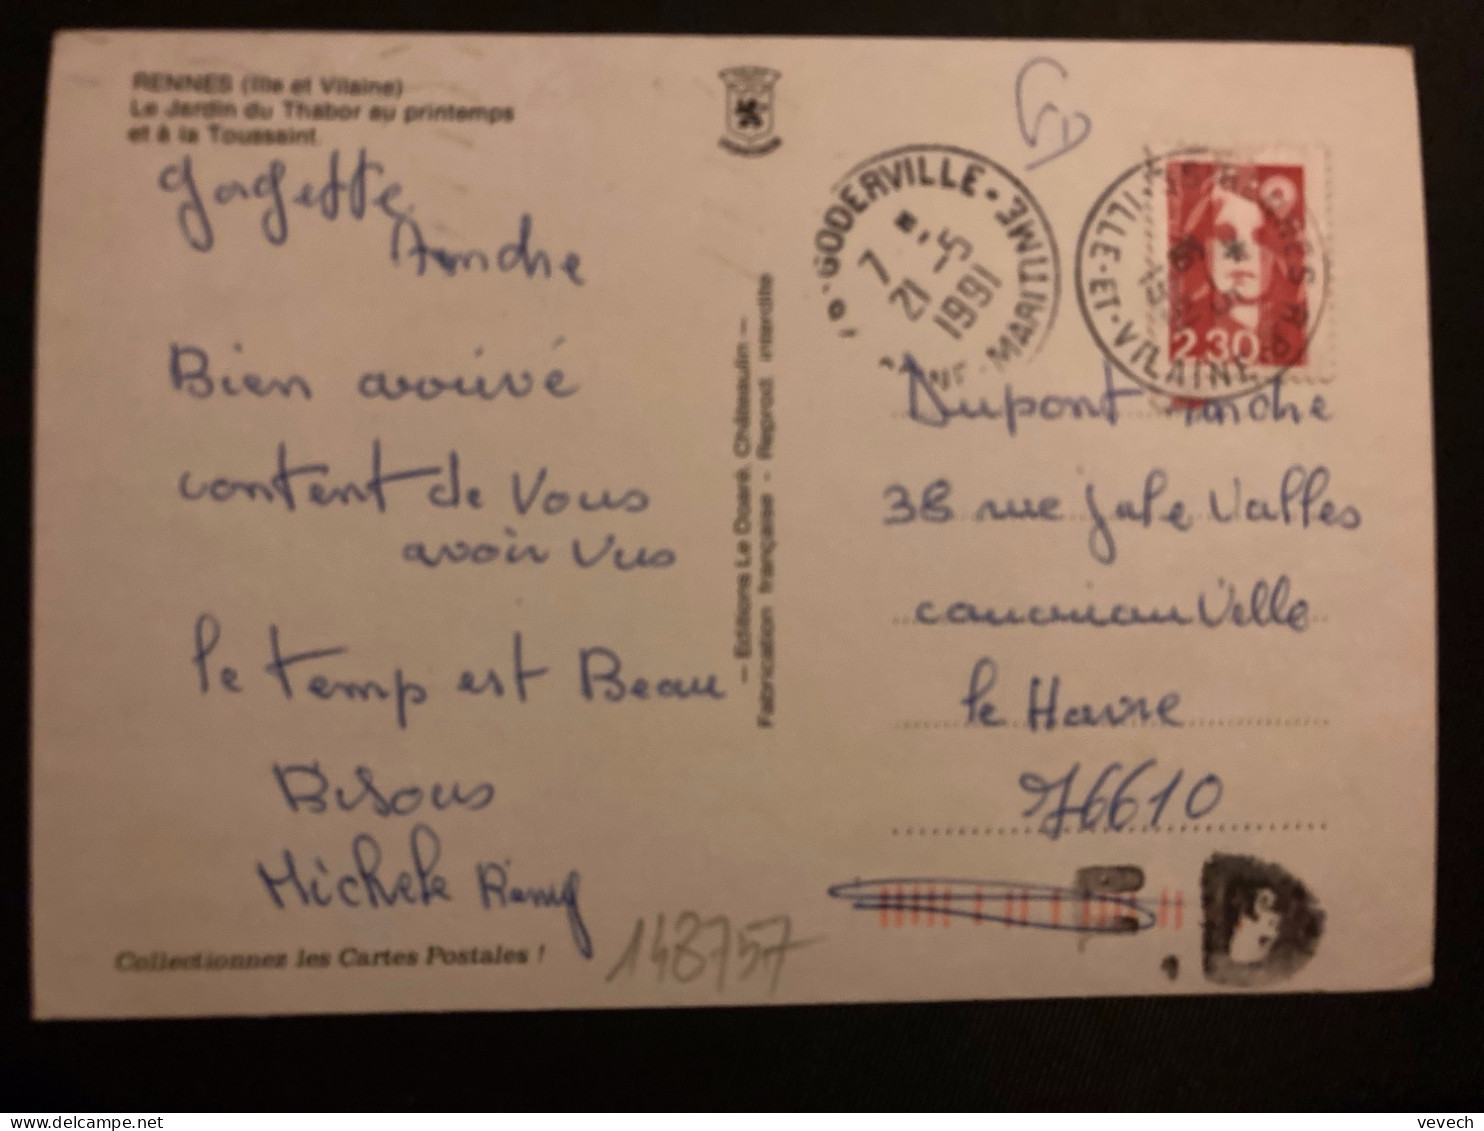 RENNES (Ille et Vilaine)
Le Jardin du Thabor au printemps
et à la Toussaint.
Andre
Bien arouivé
content de Vous
avoir Vus
le temp est Beau
Bisous
Michele Remy
Collectionnez les Cartes Postales !
148757
— Editions Le Doaré. Châteaulin —
Fabrication française - Reprod. interdite
GODERVILLE
7 *
21 -5
1991
MARITIME
ILLE-ET-VILAINE
2,30
Dupont Andre
38 rue Jule Valles
le Havre
76610
vevech